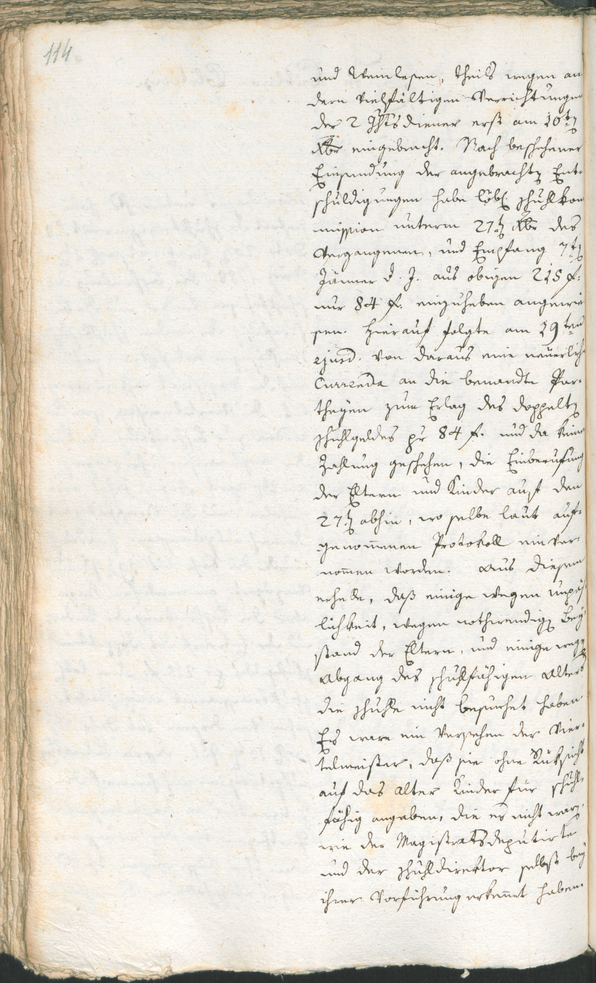 114
und Weinlesen, theils wegen an
dern vielfältigen Verrichtungen
der 2 Ghtsdiener erst am 10t
Xbr eingebracht. Nach beschehener
Einsendung der angebrachten Ent-
schuldigungen habe löbl Schulkom
mission unterm 27t Xbr des
vergangenen, und Empfang 7t
Jänner d. J. aus obigen 215 f.
nur 84 f. einzuheben angewie
sen. Hierauf folgte am 19ten
ejusd. von daraus eine neuerliche
Currenda an die benannte Par-
theyen zum Erlag des doppelten
Schulgeldes pr 84 f. und da keine
Zahlung geschehen, die Einberufung
der Eltern und Kinder auf den
27t abhin, wo selbe laut auf-
genommenen Protokoll einver-
nommen worden. Aus diesem
erhelle, daß einige wegen Unpäs
lichkeit, wegen nothwendigen Bey
stand der Eltern, und einige wegen
Abgang des schulfähigen Alters
die Schule nicht besuchet haben.
Es ware ein Versehen der Vier-
telmeister, daß sie ohne Rüksicht
auf das Alter Kinder für schul-
fähig angeben, die es nicht waren,
wie der Magistratsdeputirte
und der Schuldirektor selbst bey
ihrer Vorführung erkennt haben.